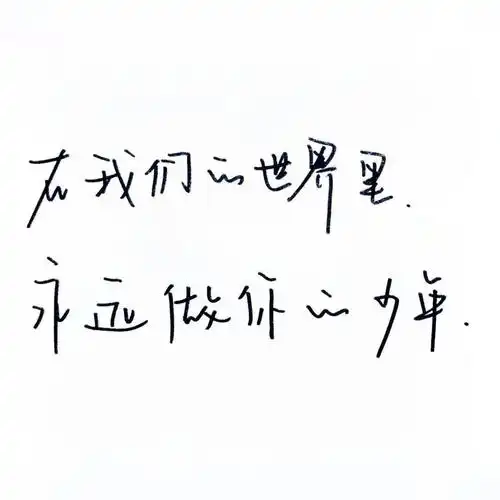 在我们的世界里.
永远做你的少年.